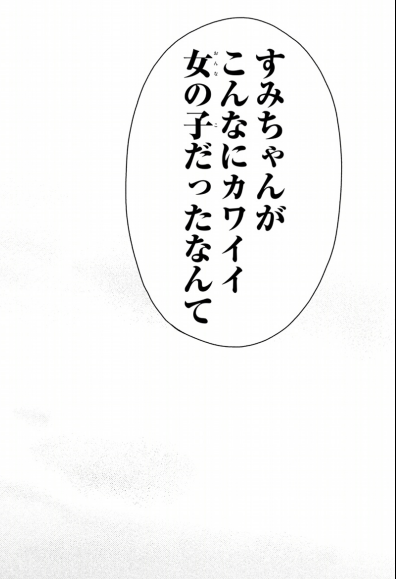 すみちゃんが
こんなにカワイイ
女の子だったなんて